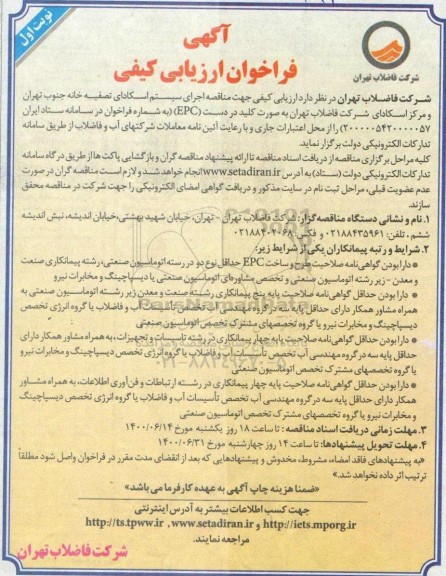 نوبت اول
آگهی
فراخوان ارزیابی کیفی
شرکت فاضلاب تهران
شرکت فاضلاب تهران در نظر دارد ارزیابی کیفی جهت مناقصه اجرای سیستم اسکادای تصفیه خانه جنوب تهران
و مرکز اسکادای شرکت فاضلاب تهران به صورت کلید در دست (EPC) (به شماره فراخوان در سامانه ستاد ایران
۲۰۰۰۰۰۵۴۲۰۰۰۰۰۵۷) را از محل اعتبارات جاری و با رعایت آئین نامه معاملات شرکتهای آب و فاضلاب از طریق سامانه
تدارکات الکترونیکی دولت برگزار نماید.
کلیه مراحل برگزاری مناقصه از دریافت اسناد مناقصه تا ارائه پیشنهاد مناقصه گران و بازگشایی پاکت ها از طریق درگاه سامانه
تدارکات الکترونیکی دولت (ستاد) به آدرس www.setadiran.ir انجام خواهد شد و لازم است مناقصه گران در صورت
عدم عضویت قبلی، مراحل ثبت نام در سایت مذکور و دریافت گواهی امضای الکترونیکی را جهت شرکت در مناقصه محقق
سازند.
۱. نام و نشانی دستگاه مناقصه گزار: شرکت فاضلاب تهران - تهران، خیابان شهید بهشتی، خیابان اندیشه، نبش اندیشه
ششم، تلفن: ۰۲۱۸۸۴۳۵۹۶۱ و فکس: ۰۲۱۸۸۴۰۲۰۶۸
۲. شرایط و رتبه پیمانکاران یکی از شرایط زیر:
• دارا بودن گواهی نامه صلاحیت طرح و ساخت EPC حداقل نوع دو در رسته اتوماسیون صنعتی، رشته پیمانکاری صنعت
و معدن - زیر رشته اتوماسیون صنعتی و تخصص مشاوره ای اتوماسیون صنعتی یا دیسپاچینگ و مخابرات نیرو
• دارا بودن حداقل گواهی نامه صلاحیت پایه پنج پیمانکاری رشته صنعت و معدن زیر رشته اتوماسیون صنعتی به
همراه مشاور همکار دارای حداقل پایه سه در گروه مهندسی آب تخصص تأسیسات آب و فاضلاب یا گروه انرژی تخصص
دیسپاچینگ و مخابرات نیرو یا گروه تخصصهای مشترک تخصص اتوماسیون صنعتی
• دارا بودن حداقل گواهی نامه صلاحیت پایه چهار پیمانکاری در رشته تاسیسات و تجهیزات، به همراه مشاور همکار دارای
حداقل پایه سه در گروه مهندسی آب تخصص تأسیسات آب و فاضلاب یا گروه انرژی تخصص دیسپاچینگ و مخابرات نیرو
یا گروه تخصصهای مشترک تخصص اتوماسیون صنعتی
• دارا بودن حداقل گواهی نامه صلاحیت پایه چهار پیمانکاری در رشته ارتباطات و فن آوری اطلاعات، به همراه مشاور
همکار دارای حداقل پایه سه در گروه مهندسی آب تخصص تأسیسات آب و فاضلاب یا گروه انرژی تخصص دیسپاچینگ
و مخابرات نیرو یا گروه تخصصهای مشترک تخصص اتوماسیون صنعتی
۳. مهلت زمانی دریافت اسناد مناقصه: تا ساعت ۱۸ روز یکشنبه مورخ ۱۴۰۰/۰۶/۱۴
۴. مهلت تحویل پیشنهادها: تا ساعت ۱۴ روز چهارشنبه مورخ ۱۴۰۰/۰۶/۳۱
«به پیشنهادهای فاقد امضاء، مشروط، مخدوش و پیشنهادهایی که بعد از انقضای مدت مقرر در فراخوان واصل شود مطلقاً
ترتیب اثر داده نخواهد شد.»
«ضمنا هزینه چاپ آگهی به عهده کارفرما می باشد»
جهت کسب اطلاعات بیشتر به آدرس اینترنتی
http://iets.mporg.ir و www.setadiran.ir , http://ts.tpww.ir
مراجعه نمایند.
شرکت فاضلاب تهران